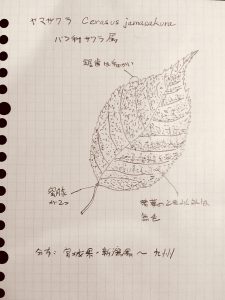 ヤマザクラ Cerasus jamasakura
バラ科サクラ属
鋸歯は細かい
蜜腺
が2つ
無毛
分布:宮城県・新潟県〜九州